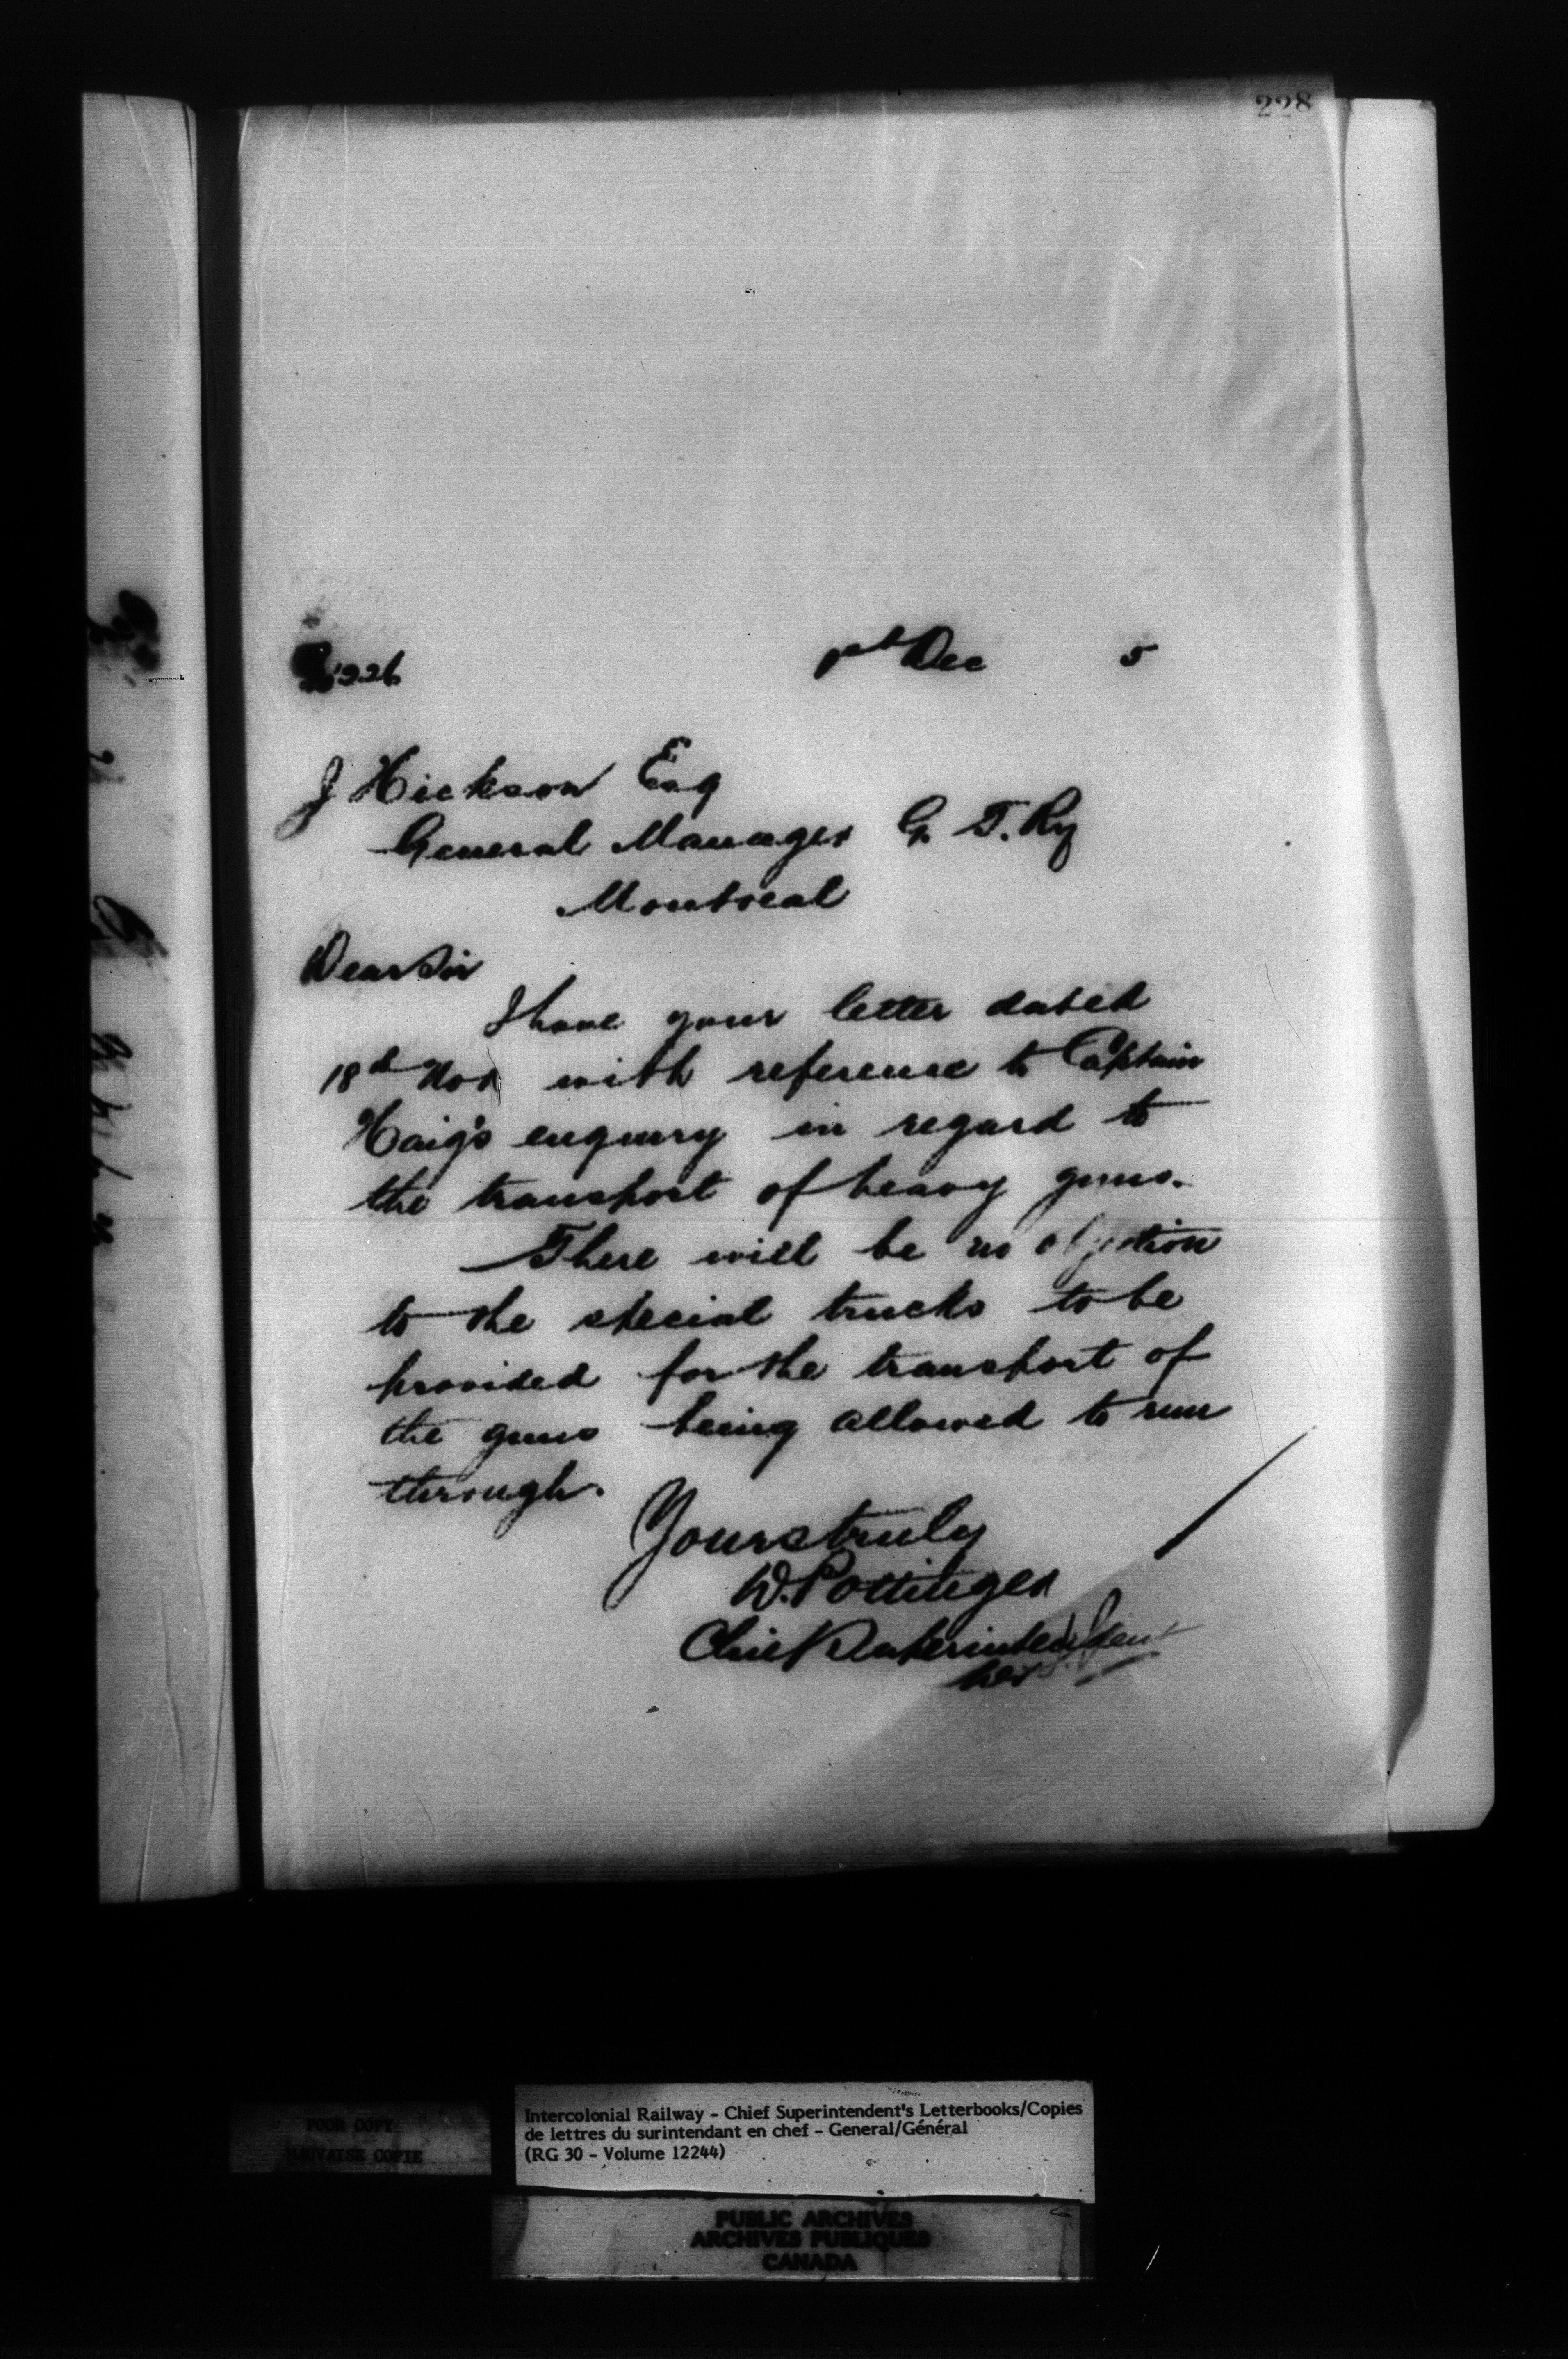 228
1st Dec 5
J Hickson Esq
General Manager G. T. Ry
Montreal
Dear Sir
I have your letter dated
18th Nov with reference to Captain
Haig's enquiry in regard to
the transport of heavy guns.
There will be no objection
to the special trucks to be
provided for the transport of
the guns being allowed to run
through.
Yours truly
W. Pottinger
Chief Superintendent
POOR COPY
MAUVAISE COPIE
Intercolonial Railway - Chief Superintendent's Letterbooks/Copies
de lettres du surintendant en chef - General/Général
(RG 30 - Volume 12244)
PUBLIC ARCHIVES
ARCHIVES PUBLIQUES
CANADA